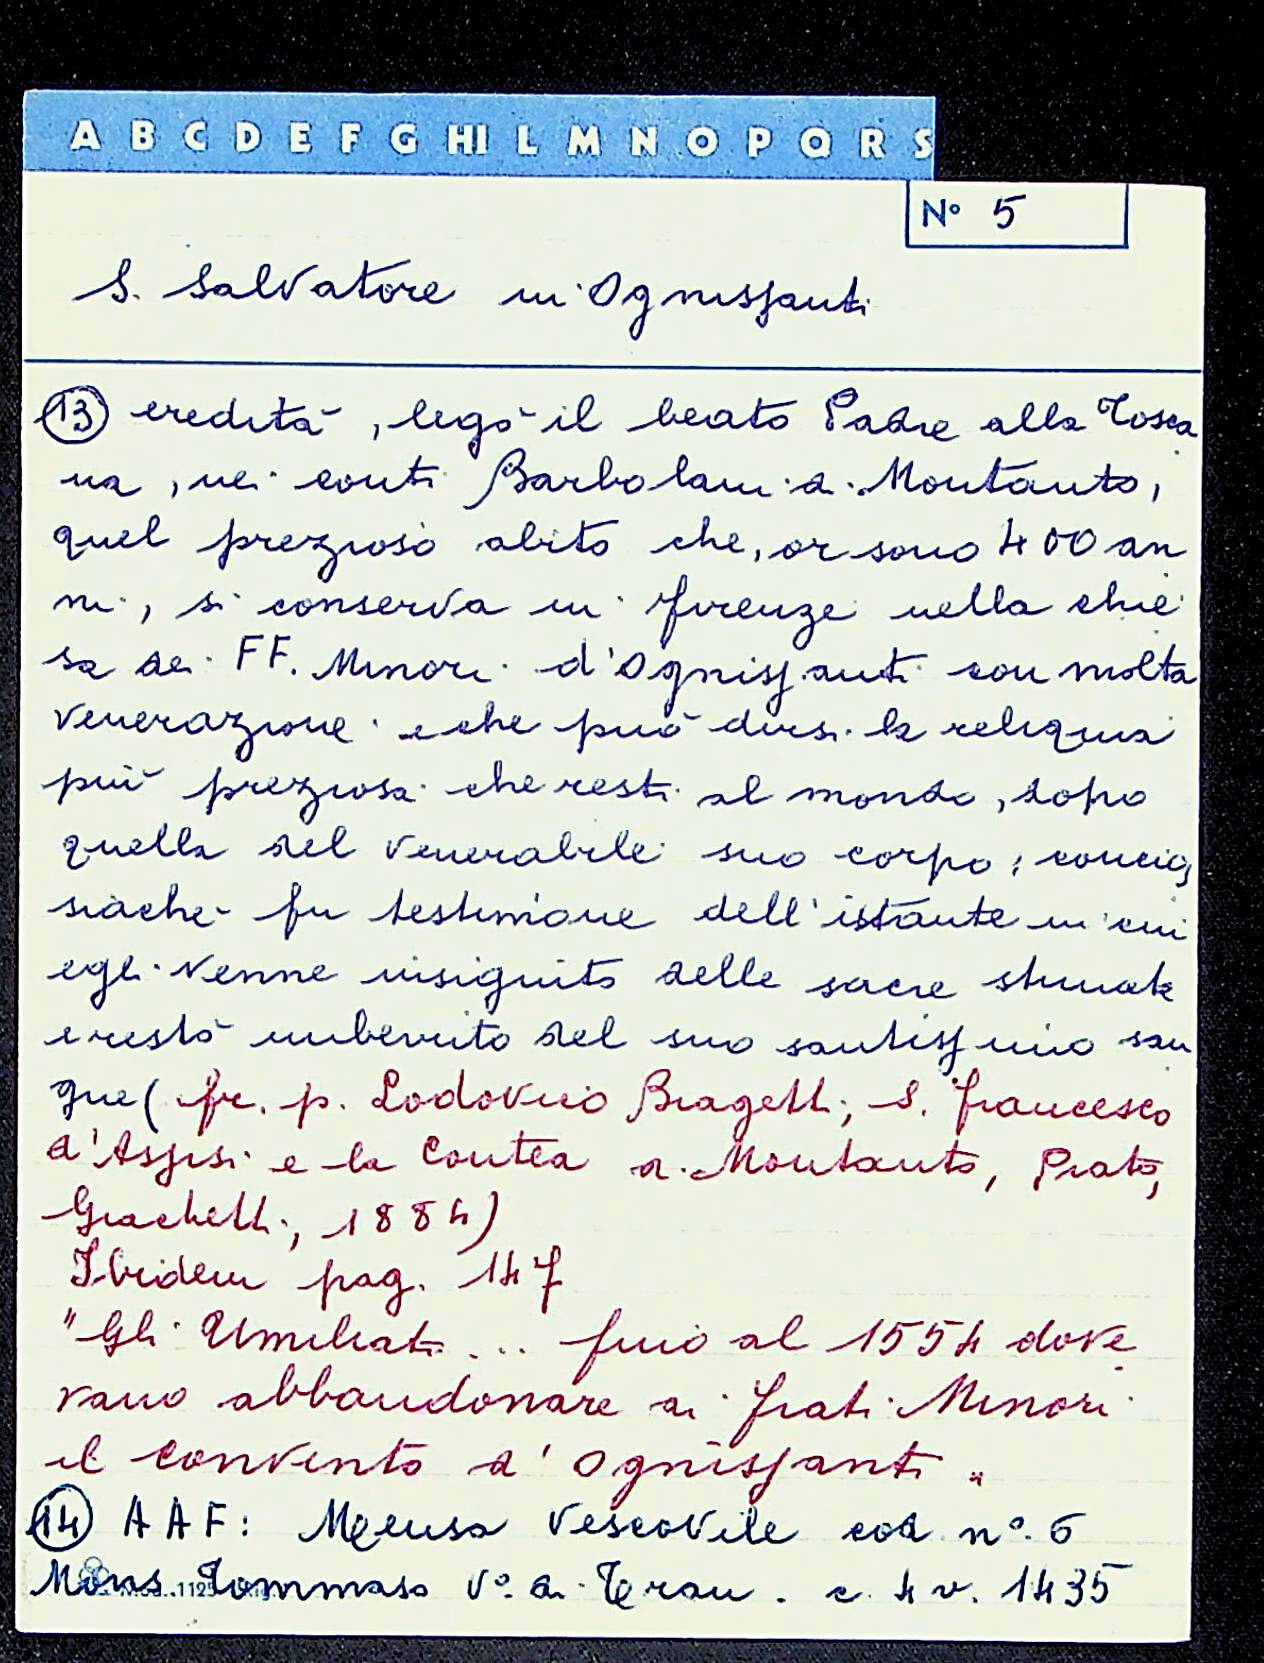 A B C D E F G HI L M N O P Q R S
N° 5
S. Salvatore in Ognissanti
13 eredità, legò il beato Padre alla Tosca
na, nei conti Barbolani di Montauto,
quel prezioso abito che, or sono 400 an
ni, si conserva in Firenze nella chie
sa dei FF. Minori d'Ognissanti con molta
venerazione e che può dirsi la reliquia
più preziosa che resti al mondo, dopo
quella del venerabile suo corpo; concios
siachè fu testimone dell'istante in cui
egli venne insignito delle sacre stimate
e restò imbevuto del suo santissimo san
gue (fr. p. Lodovico Bragetti; S. Francesco
d'Assisi e la Contea di Montauto, Prato,
Giachetti, 1884)
Ibidem pag. 147
"Gli Umiliati ... fino al 1554 dove
vano abbandonare ai Frati Minori
il convento d'Ognissanti"
14 AAF: Mensa Vescovile cod n°. 6
Mons Tommaso V°. di c. 4 v. 1435